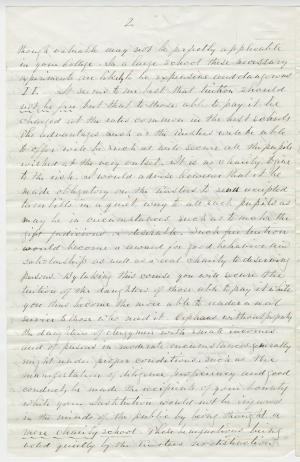 2
though valuable may not be perfectly applicable
in your College. In a large school these necessary
experiments are likely to be expensive and dangerous
II. It seems to me best that tuition should
not be free but that to those able to pay it be
charged at the rates common in the best schools
The advantages such as the Trustees will be able
to offer will be such as will secure all the pupils
wished at the very outset. It is no charity to give
to the rich. I would advise however that it be
made obligatory on the Trustees to
tuition in a quiet way to all such pupils as
may be in circumstances such as to make the
gift judicious & desirable. Such free tuition
would become a reward for good behavior and
scholarship as well as a real charity to deserving
persons. By taking this course you will secure the
tuition of the daughters of those able to pay it while
you thus become the more able to render a real
service to those who need it. Orphans without property
the daughters of clergymen with small incomes
and of persons in moderate circumstances generally
might under proper conditions, such as the
manifestation of diligence proficiency and good
conduct, be made the recipients of your bounty
while your Institution would not be injured
in the minds of the public by being thought a
mere charity school. These benefactions being
voted quietly by the Trustees no distinction